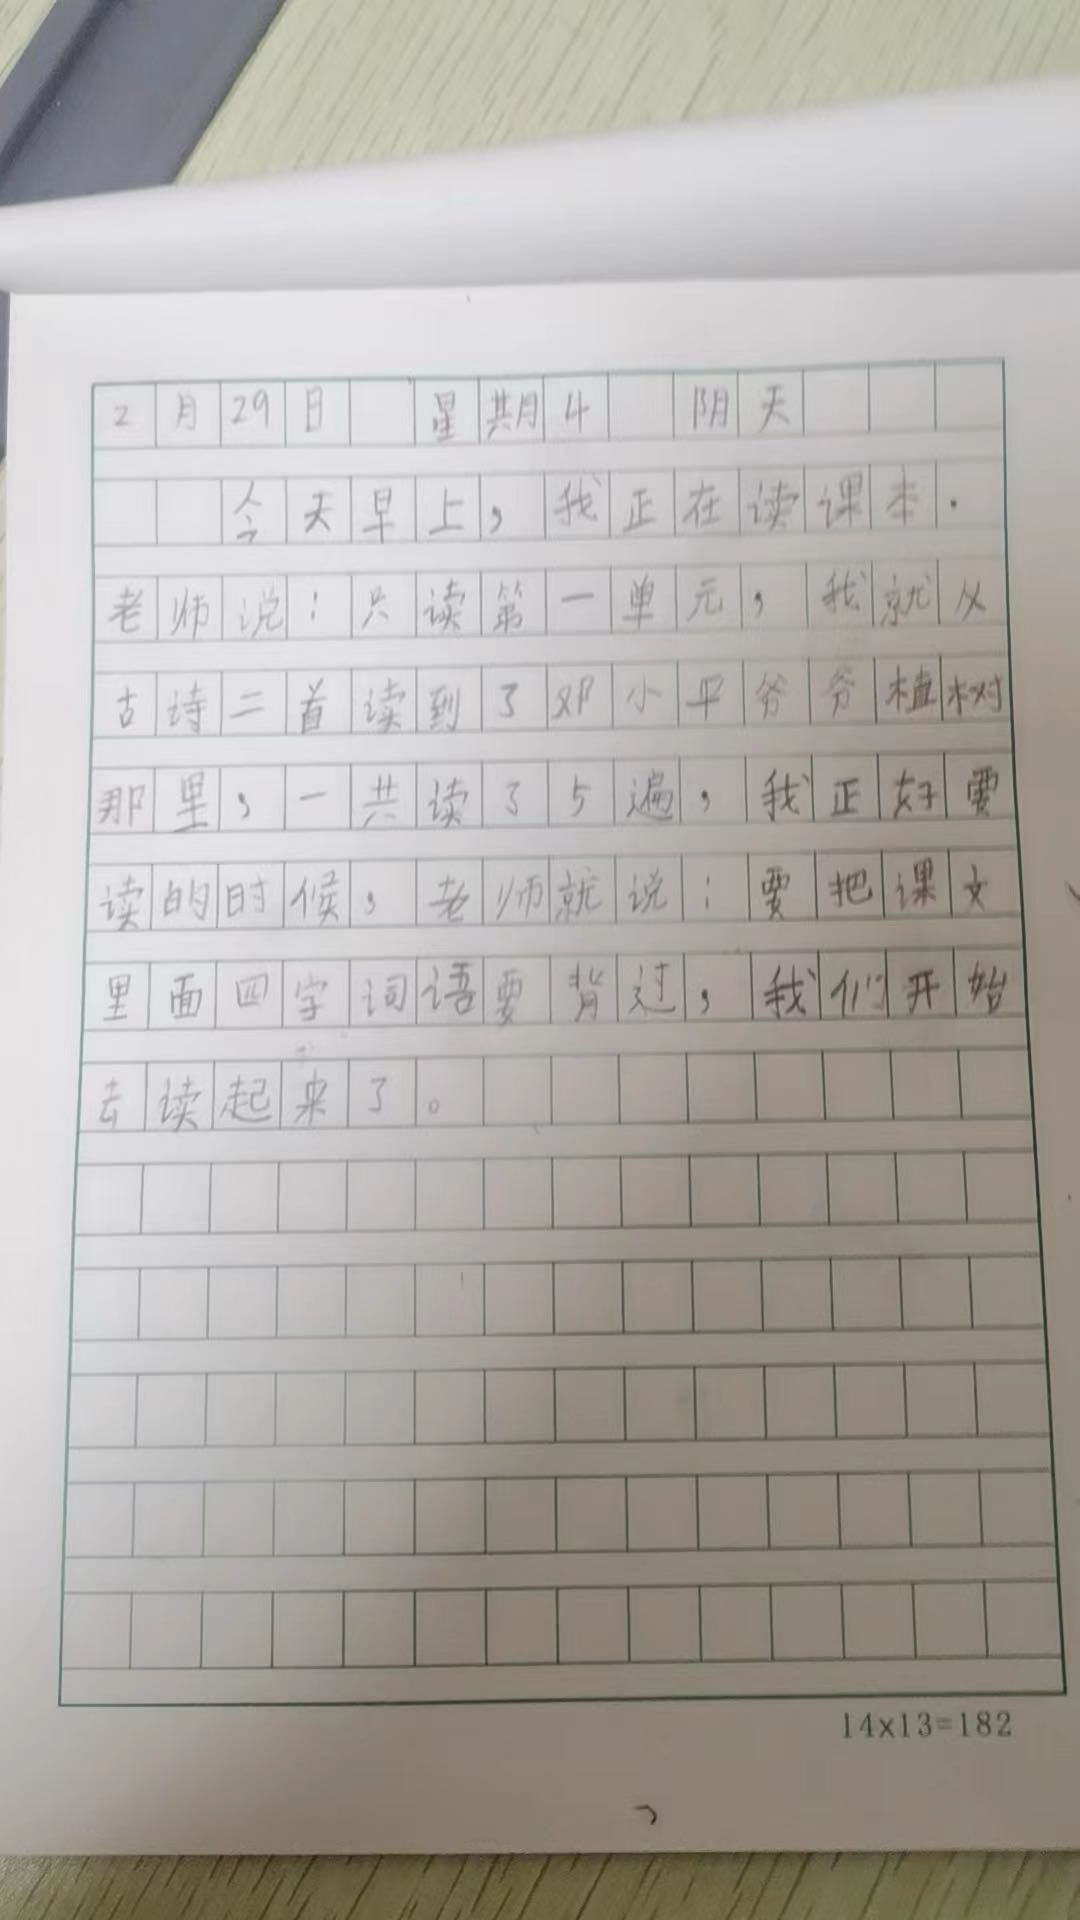 2月29日 星期4 阴天
今天早上，我正在读课本.
老师说：只读第一单元，我就从
古诗二首读到了邓小平爷爷植树
那里，一共读了5遍，我正好要
读的时候，老师就说：要把课文
里面四字词语要背过，我们开始
去读起来了。
14x13=182